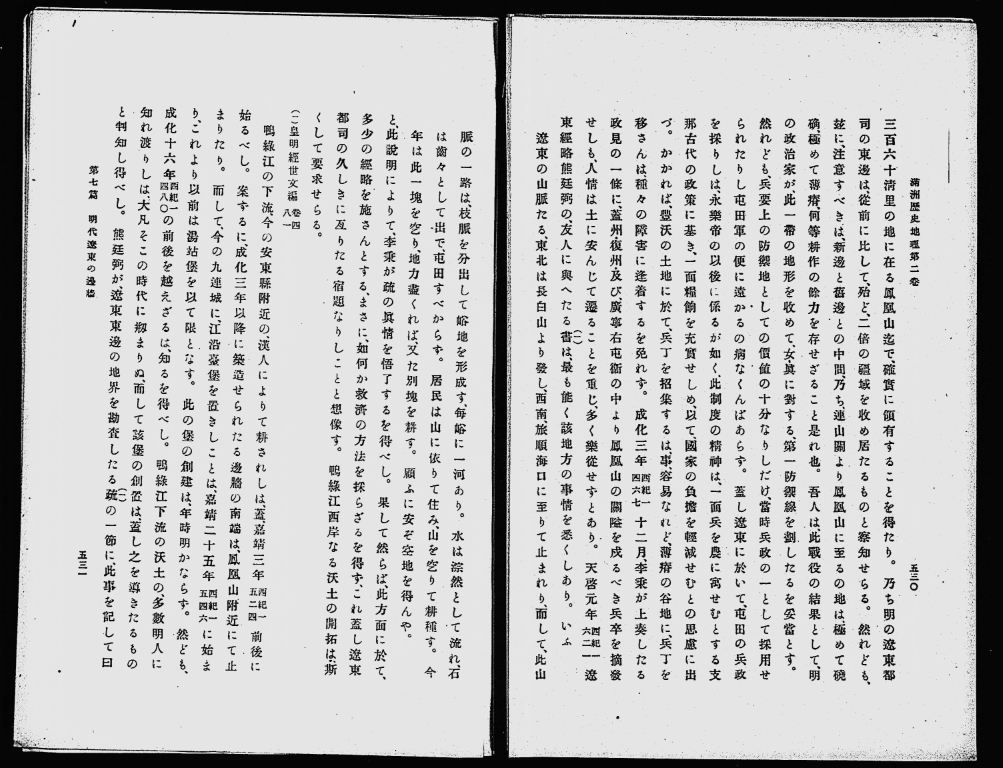 滿洲歷史地理第二卷
五三〇
三百六十淸里の地に在る鳳凰山迄で、確實に領有することを得たり。乃ち明の遼東都
司の東邊は、從前に比して、殆ど、二倍の疆域を收め居たるものと察知せらる。然れども、
玆に、注意すべきは、新邊と舊邊との中間、乃ち、連山關より鳳凰山に至るの地は、極めて磽
确極めて薄瘠、何等耕作の餘力を存せざること是れ也。吾人は、此戰役の結果として、明
の政治家が、此一帶の地形を收めて、女眞に對する、第一防禦線を劃したるを妥當とす。
然れども、兵要上の防禦地としての價値の十分なりしだけ、當時兵政の一として採用せ
られたりし屯田軍の便に遠かるの病なくんばあらず。蓋し遼東に於いて、屯田の兵政
を採りしは、永樂帝の以後に係るが如く、此制度の精神は、一面兵を農に寓せむとする支
那古代の政策に基き、一面糧餉を充實せしめ、以て、國家の負擔を輕減せむとの思慮に出
づ。かかれば、豐沃の土地に於て、兵丁を招集するは、事容易なれど、薄瘠の谷地に、兵丁を
移さんは、種々の障害に逢着するを免れず。成化三年西紀一四六七十二月、李秉が上奏したる
政見の一條に、蓋州復州及び廣寧右屯衞の中より鳳凰山の關隘を戍るべき兵卒を摘發
せしも、人情は土に安んじて遷ることを重じ、多く樂從せずとあり。天啓元年西紀一六二一遼
東經略熊廷弼の、友人に與へたる書(一)は、最も能く該地方の事情を悉くしあり。いふ
遼東の山脈たる、東北は長白山より發し、西南旅順海口に至りて止まれり、而して、此山
脈の一路は、枝脈を分出して峪地を形成す、每峪に一河あり。水は淙然として流れ、石
は齒々として出で、屯田すべからず。居民は山に依りて住み、山を空りて耕種す。今
年は此一塊を空り、地力盡くれば、又た別塊を耕す。顧ふに安ぞ空地を得んや。
と、此說明によりて、李秉が疏の眞情を悟了するを得べし。果して然らば、此方面に於て、
多少の經略を施さんとする、まさに、如何か救濟の方法を採らざるを得ず、これ蓋し遼東
都司の久しきに亙りたる宿題なりしことと想像す。鴨綠江西岸なる沃土の開拓は、斯
くして要求せらる。
(一)皇明經世文編卷四八〇
鴨綠江の下流、今の安東縣附近の漢人によりて耕されしは、蓋、嘉靖三年西紀一五二四前後に
始るべし。案ずるに成化三年以降に築造せられたる邊牆の南端は、鳳凰山附近にて止
まりたり。而して、今の九連城に、江沿臺堡を置きしことは、嘉靖二十五年西紀一五四六に始ま
り、これより以前は湯站堡を以て限となす。此の堡の創建は、年時明かならず。然ども、
成化十六年西紀一四八〇の前後を越えざるは、知るを得べし。鴨綠江下流の沃土の、多數明人に
知れ渡りしは、大凡そこの時代に剏まりぬ、而して該堡の創置は、蓋し之を導きたるもの
と判知し得べし。熊廷弼が遼東東邊の地界を勘査したる疏(一)の一節に、此事を記して曰
第七篇 明代遼東の邊牆
五三一